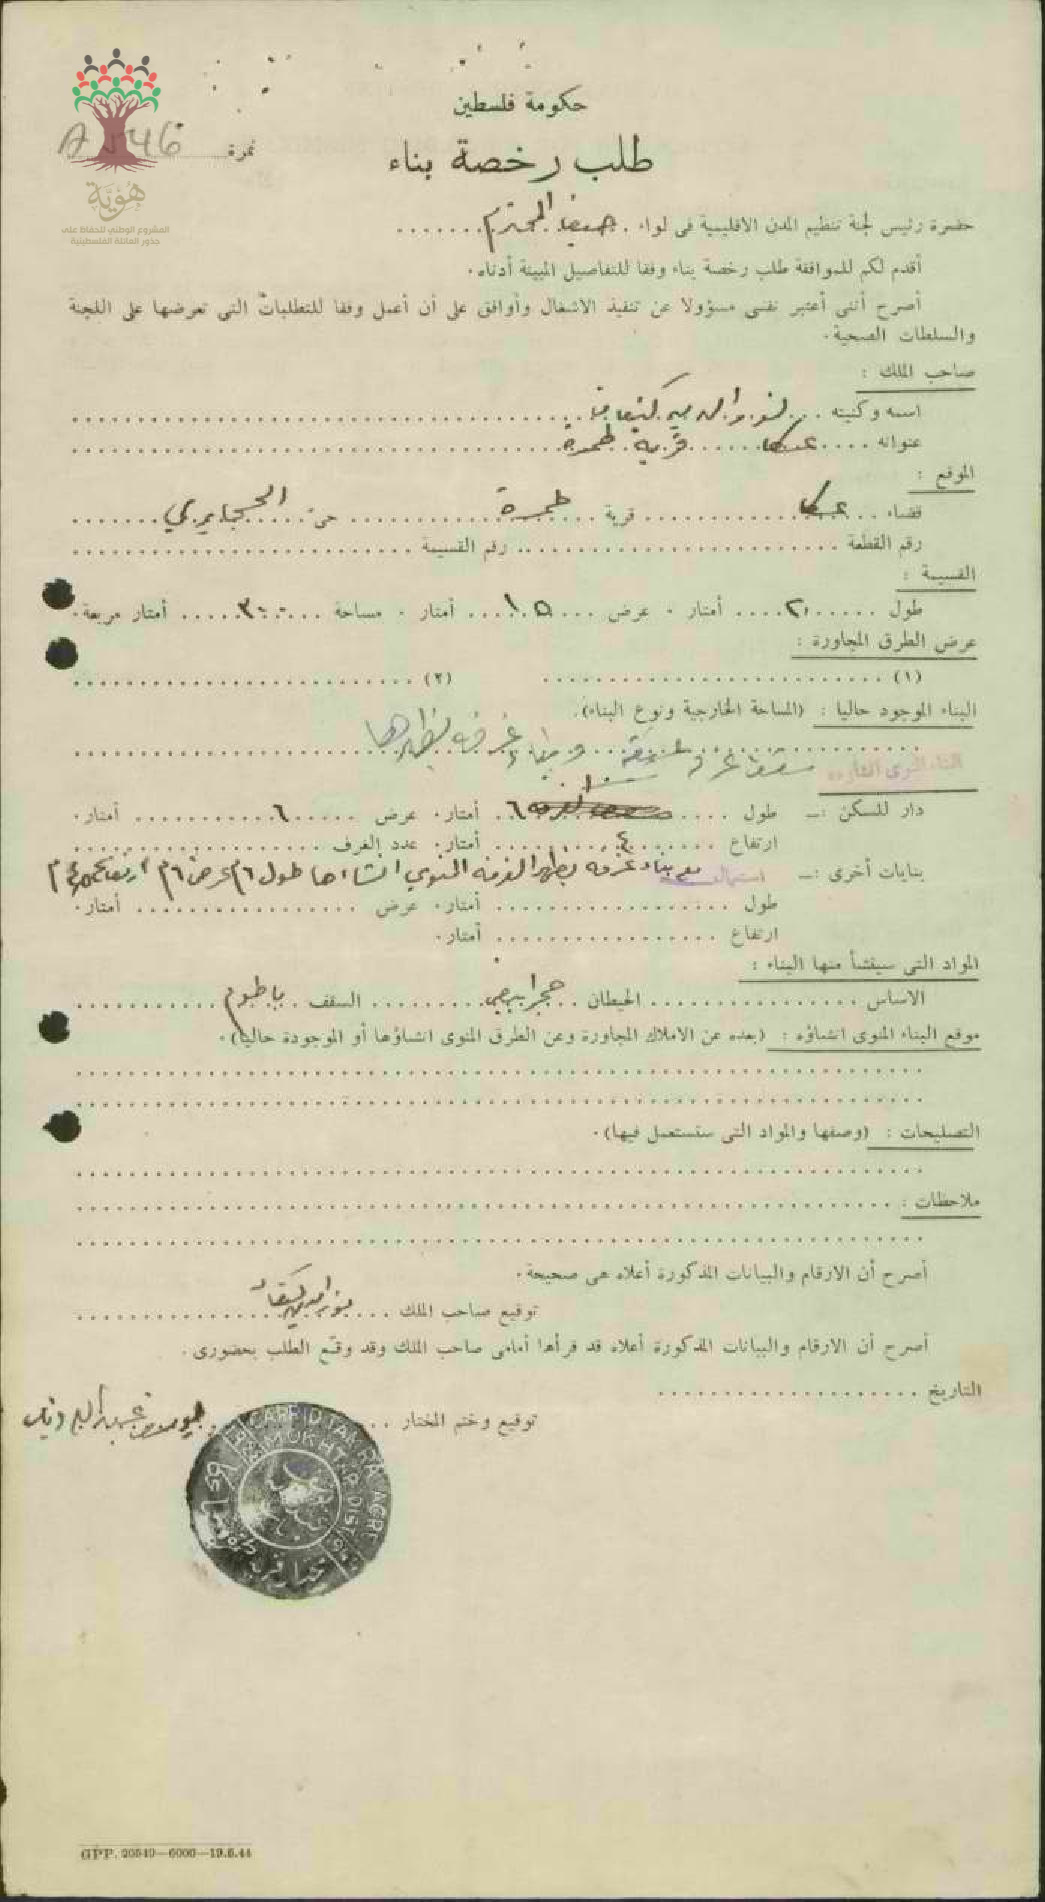 حكومة فلسطين
طلب رخصة بناء
نمرة
هُوِيَّة
المشروع الوطني للحفاظ على
جذور العائلة الفلسطينية
حضرة رئيس لجنة تنظيم المدن الاقليمية فى لواء حيفا المحترم
أقدم لكم للموافقة طلب رخصة بناء وفقا للتفاصيل المبينة أدناه.
أصرح أننى أعتبر نفسى مسؤولا عن تنفيذ الاشغال وأوافق على أن أعمل وفقا للمتطلبات التى تعرضها على اللجنة
والسلطات الصحية.
صاحب الملك :
اسمه وكنيته
عنوانه عكا قرية طمرة
الموقع :
قضاء عكا قرية طمرة حى
رقم القطعة رقم القسيمة
القسيمة :
طول ٢٠ أمتار . عرض ١٥ أمتار . مساحة ٣٠٠ أمتار مربعة.
عرض الطرق المجاورة :
(١) (٢)
البناء الموجود حاليا : (المساحة الخارجية ونوع البناء).
سقف غرفة عتيقة وبناء غرفه بظهرها
دار للسكن :— طول ٦ أمتار. عرض ٦ أمتار.
ارتفاع ٤ أمتار. عدد الغرف
بنايات أخرى :— مع بناء غرفه بظهر الغرفه المنوي انشاءها طول ٦م عرض ٦م
طول أمتار. عرض أمتار.
ارتفاع أمتار.
المواد التى سينشأ منها البناء :
الاساس الحيطان حجر ابيض السقف باطون
موقع البناء المنوى انشاؤه : (بعده عن الاملاك المجاورة وعن الطرق المنوى انشاؤها أو الموجودة حاليا).
التصليحات : (وصفها والمواد التى ستستعمل فيها).
ملاحظات :
أصرح أن الارقام والبيانات المذكورة أعلاه هى صحيحة.
توقيع صاحب الملك
أصرح أن الارقام والبيانات المذكورة أعلاه قد قرأها أمامى صاحب الملك وقد وقع الطلب بحضورى.
التاريخ
توقيع وختم المختار
TAMRA ACRE
MUKHTAR DIST
مختار قرية طمره
GPP. 20540—6000—19.6.44